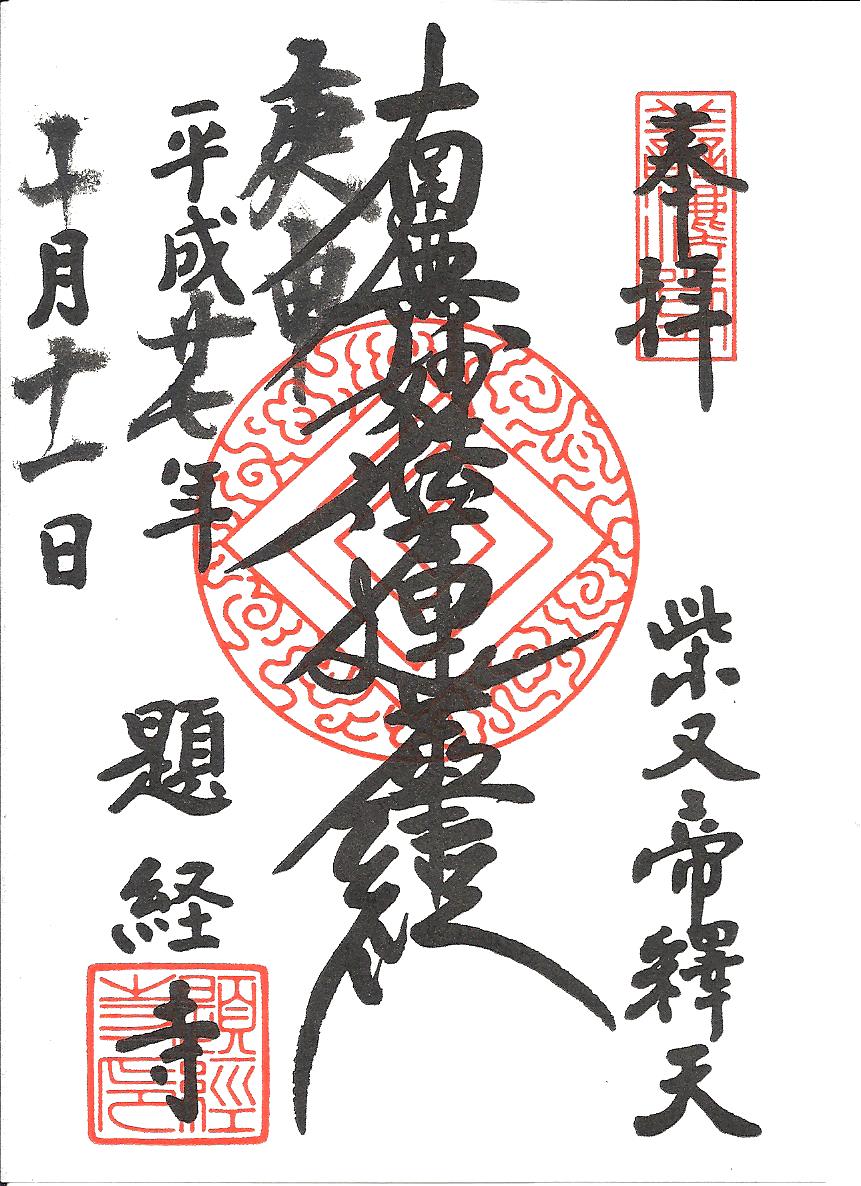 奉拝
柴又帝釋天
南無妙法蓮華経
庚申
平成廿七年
十月十一日
題経寺
題經寺印